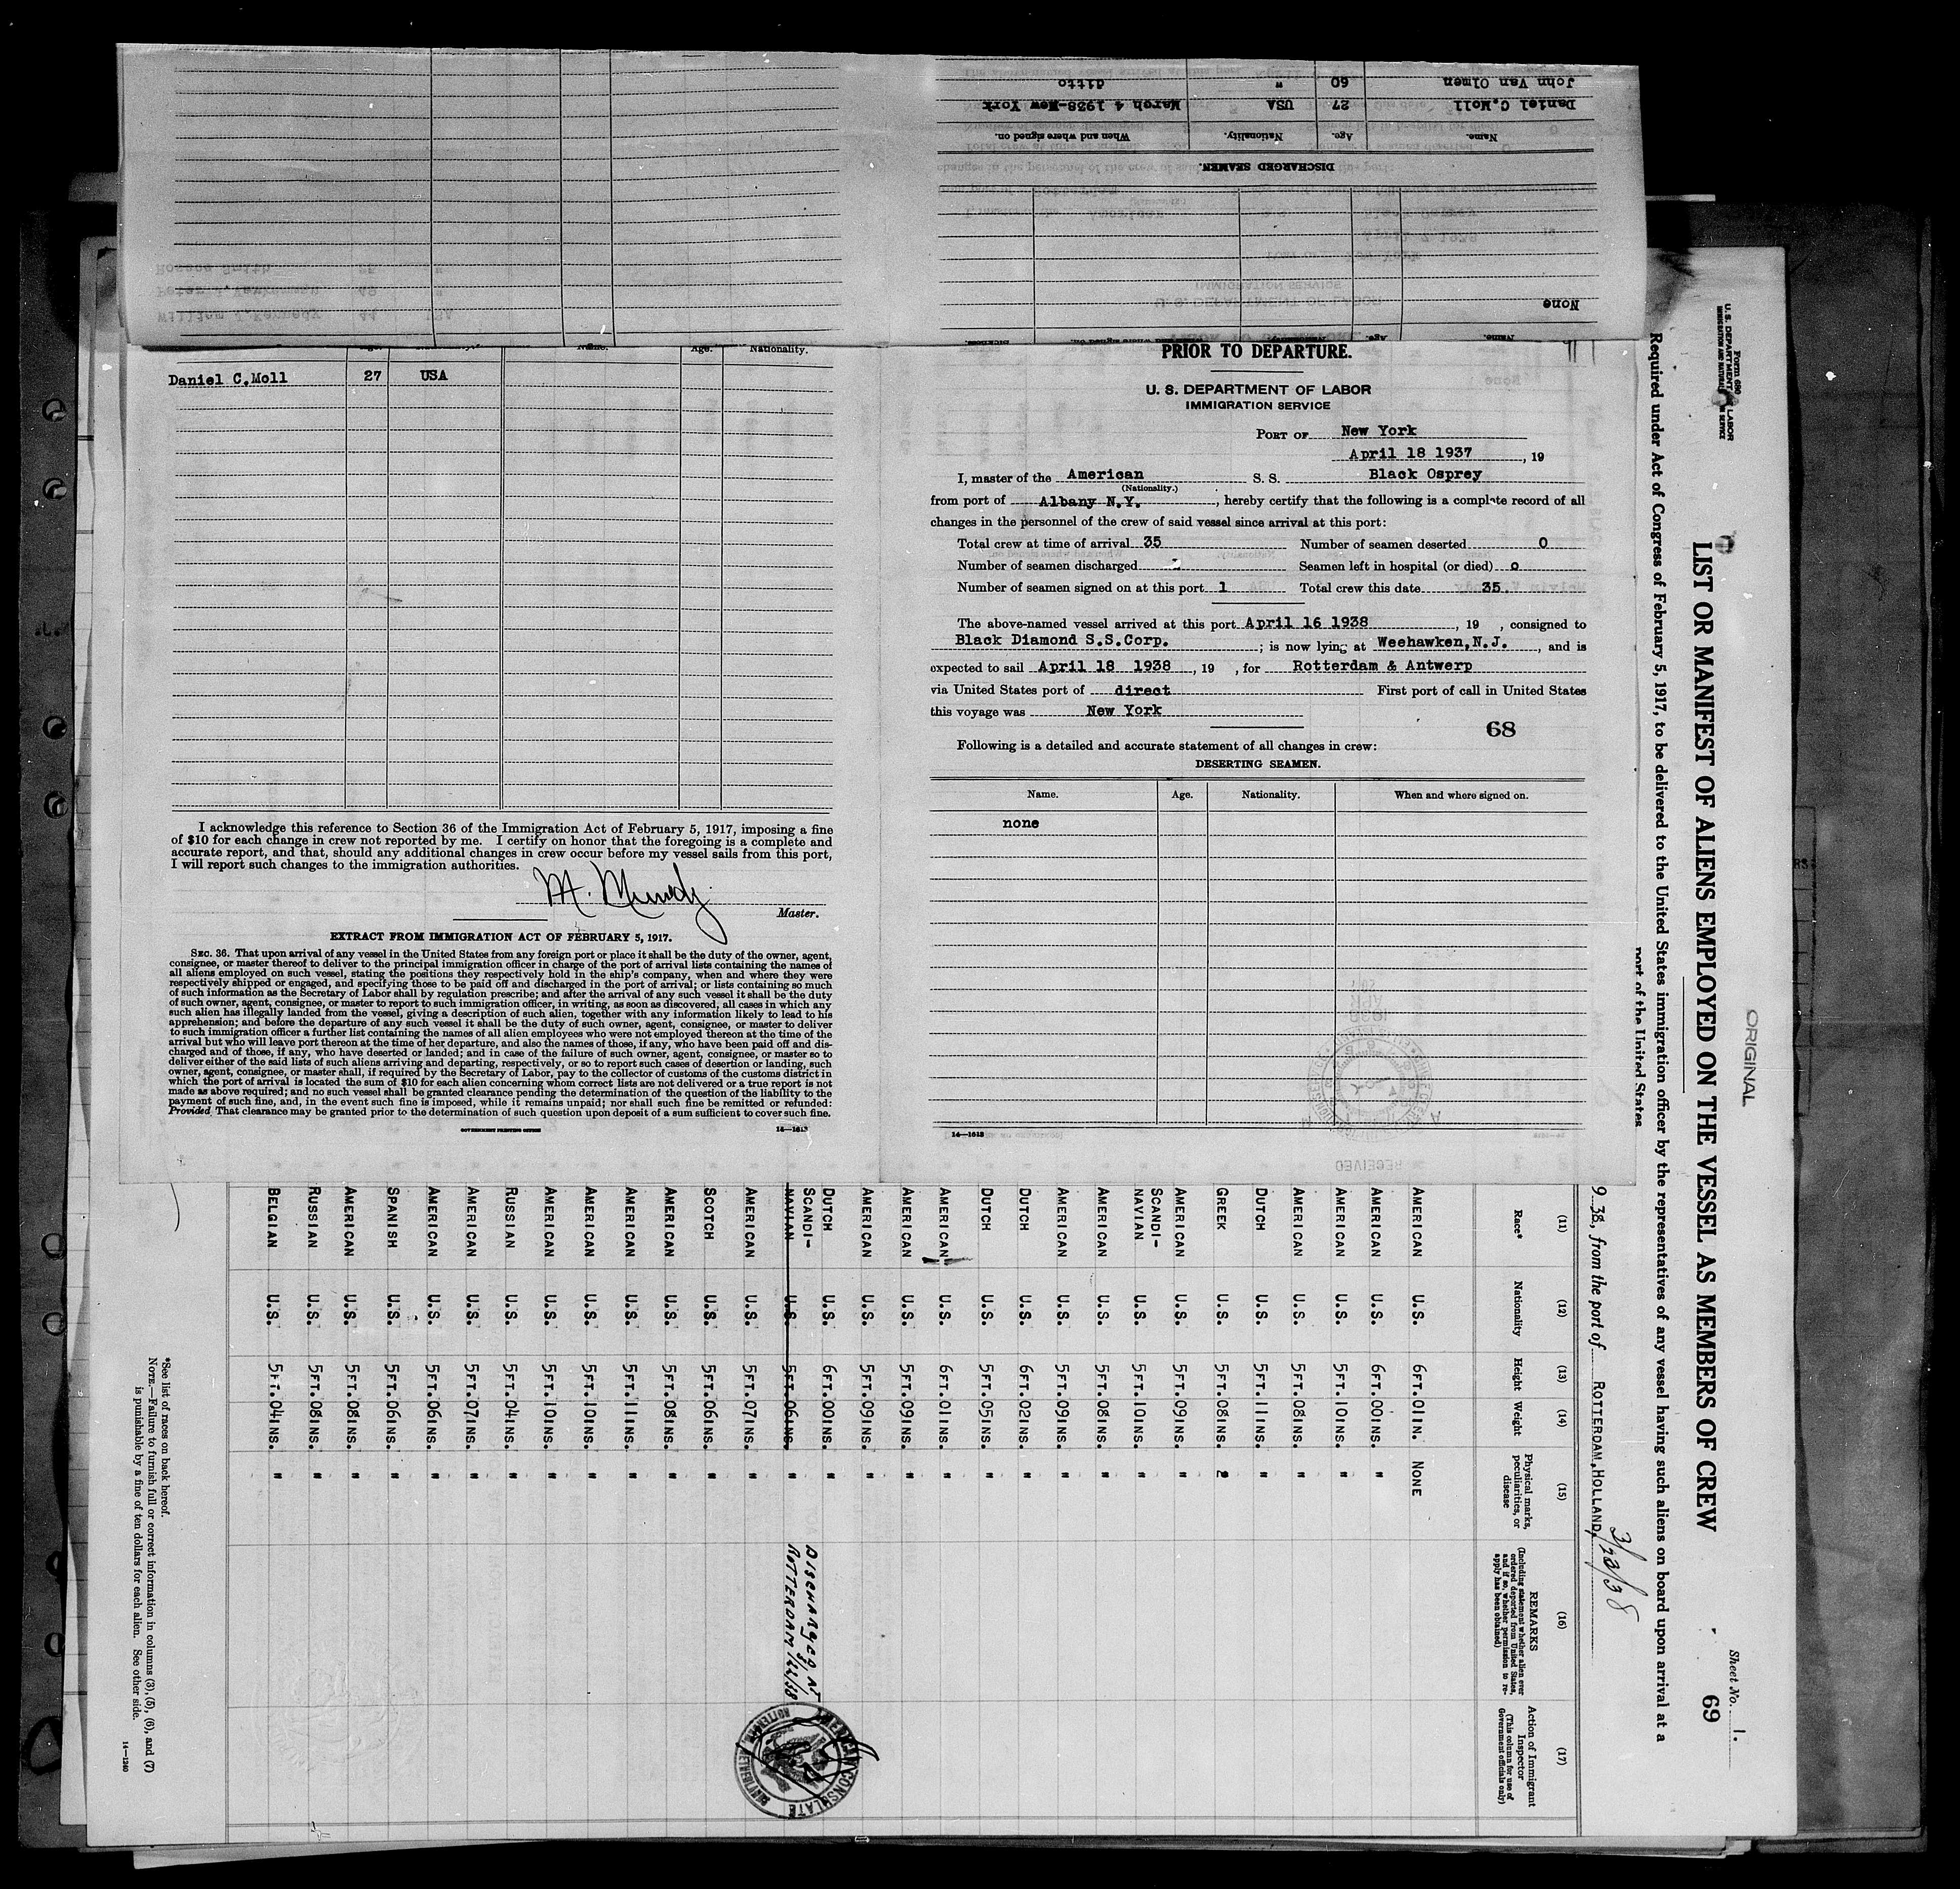 John Van Olmen 60 " ditto
Daniel C.Moll 27 USA March 4 1938-New York
Name. Age. Nationality. When and where signed on.
DISCHARGED SEAMEN.
None
Name. Age. Nationality.
Age. Nationality.
Daniel C.Moll 27 USA
I acknowledge this reference to Section 36 of the Immigration Act of February 5, 1917, imposing a fine
of $10 for each change in crew not reported by me. I certify on honor that the foregoing is a complete and
accurate report, and that, should any additional changes in crew occur before my vessel sails from this port,
I will report such changes to the immigration authorities.
Master.
EXTRACT FROM IMMIGRATION ACT OF FEBRUARY 5, 1917.
SEC. 36. That upon arrival of any vessel in the United States from any foreign port or place it shall be the duty of the owner, agent,
consignee, or master thereof to deliver to the principal immigration officer in charge of the port of arrival lists containing the names of
all aliens employed on such vessel, stating the positions they respectively hold in the ship's company, when and where they were
respectively shipped or engaged, and specifying those to be paid off and discharged in the port of arrival; or lists containing so much
of such information as the Secretary of Labor shall by regulation prescribe; and after the arrival of any such vessel it shall be the duty
of such owner, agent, consignee, or master to report to such immigration officer, in writing, as soon as discovered, all cases in which any
such alien has illegally landed from the vessel, giving a description of such alien, together with any information likely to lead to his
apprehension; and before the departure of any such vessel it shall be the duty of such owner, agent, consignee, or master to deliver
to such immigration officer a further list containing the names of all alien employees who were not employed thereon at the time of the
arrival but who will leave port thereon at the time of her departure, and also the names of those, if any, who have been paid off and dis-
charged and of those, if any, who have deserted or landed; and in case of the failure of such owner, agent, consignee, or master so to
deliver either of the said lists of such aliens arriving and departing, respectively, or so to report such cases of desertion or landing, such
owner, agent, consignee, or master shall, if required by the Secretary of Labor, pay to the collector of customs of the customs district in
which the port of arrival is located the sum of $10 for each alien concerning whom correct lists are not delivered or a true report is not
made as above required; and no such vessel shall be granted clearance pending the determination of the question of the liability to the
payment of such fine, and, in the event such fine is imposed, while it remains unpaid; nor shall such fine be remitted or refunded:
Provided That clearance may be granted prior to the determination of such question upon deposit of a sum sufficient to cover such fine.
GOVERNMENT PRINTING OFFICE 14—1613
PRIOR TO DEPARTURE.
U. S. DEPARTMENT OF LABOR
IMMIGRATION SERVICE
PORT OF New York
April 18 1937 , 19
I, master of the American S. S. Black Osprey
(Nationality.)
from port of Albany N.Y. , hereby certify that the following is a complete record of all
changes in the personnel of the crew of said vessel since arrival at this port:
Total crew at time of arrival 35 Number of seamen deserted 0
Number of seamen discharged Seamen left in hospital (or died) 0
Number of seamen signed on at this port 1 Total crew this date 35.
The above-named vessel arrived at this port April 16 1938 , 19 , consigned to
Black Diamond S.S.Corp. ; is now lying at Weehawken,N.J. , and is
expected to sail April 18 1938 , 19 , for Rotterdam & Antwerp
via United States port of direct First port of call in United States
this voyage was New York
68
Following is a detailed and accurate statement of all changes in crew:
DESERTING SEAMEN.
Name. Age. Nationality. When and where signed on.
none
14—1613
RECEIVED
Form 680
U. S. DEPARTMENT OF LABOR
ORIGINAL
Sheet No. 1.
69
LIST OR MANIFEST OF ALIENS EMPLOYED ON THE VESSEL AS MEMBERS OF CREW
Required under Act of Congress of February 5, 1917, to be delivered to the United States immigration officer by the representatives of any vessel having such aliens on board upon arrival at a
port of the United States
9 38, from the port of ROTTERDAM,HOLLAND,
(11) (12) (13) (14) (15) (16) (17)
Race* Nationality Height Weight Physical marks, peculiarities, or disease REMARKS (Including statement whether alien ever ordered deported from United States, and if so, whether permission to re-apply has been obtained) Action of Immigrant Inspector (This column for use of Government officials only)
AMERICAN U.S. 6FT.01IN. NONE
AMERICAN U.S. 6FT.00INS. "
AMERICAN U.S. 5FT.10INS. "
AMERICAN U.S. 5FT.08INS. "
DUTCH U.S. 5FT.11INS. "
GREEK U.S. 5FT.08INS. "
AMERICAN U.S. 5FT.09INS. "
SCANDI-
NAVIAN U.S. 5FT.10INS. "
AMERICAN U.S. 5FT.08INS. "
AMERICAN U.S. 5FT.09INS. "
DUTCH U.S. 6FT.02INS. "
DUTCH U.S. 5FT.05INS. "
AMERICAN U.S. 6FT.01INS. "
AMERICAN U.S. 5FT.09INS. "
AMERICAN U.S. 5FT.09INS. "
DUTCH U.S. 6FT.00INS. "
SCANDI- DISCHARGED AT
NAVIAN U.S. 5FT.06INS. " ROTTERDAM
AMERICAN U.S. 5FT.07INS. "
SCOTCH U.S. 5FT.06INS. "
AMERICAN U.S. 5FT.08INS. "
AMERICAN U.S. 5FT.11INS. "
AMERICAN U.S. 5FT.10INS. "
AMERICAN U.S. 5FT.10INS. "
RUSSIAN U.S. 5FT.04INS. "
AMERICAN U.S. 5FT.07INS. "
AMERICAN U.S. 5FT.06INS. "
SPANISH U.S. 5FT.06INS. "
AMERICAN U.S. 5FT.08INS. "
RUSSIAN U.S. 5FT.08INS. "
BELGIAN U.S. 5FT.04INS. "
AMERICAN CONSULATE
*See list of races on back hereof.
NOTE.—Failure to furnish full or correct information in columns (3), (5), (6), and (7)
is punishable by a fine of ten dollars for each alien. See other side.
14—1240